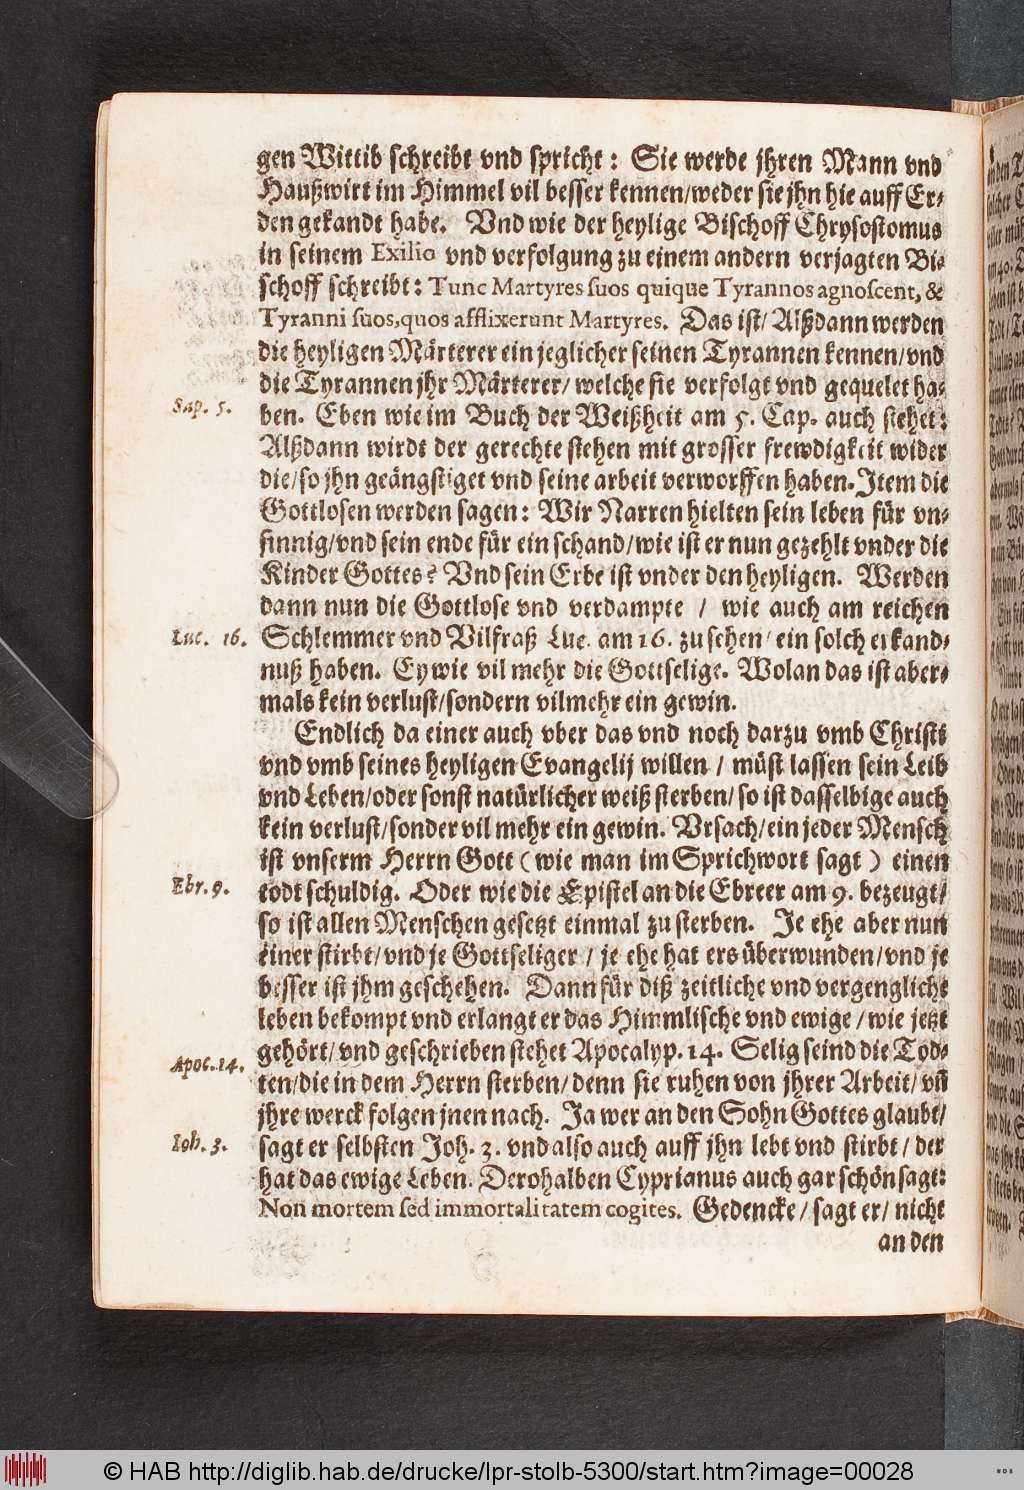 gen Wittib schreibt vnd spricht: Sie werde jhren Mann vnd
Haußwirt im Himmel vil besser kennen/weder sie jhn hie auff Er-
den gekandt habe. Vnd wie der heylige Bischoff Chrysostomus
in seinem Exilio vnd verfolgung zu einem andern verjagten Bi-
schoff schreibt: Tunc Martyres suos quique Tyrannos agnoscent, &
Tyranni suos, quos afflixerunt Martyres. Das ist/ Alßdann werden
die heyligen Märterer ein jeglicher seinen Tyrannen kennen/vnd
die Tyrannen jhr Märterer/ welche sie verfolgt vnd gequelet ha-
Sap. 5.
ben. Eben wie im Buch der Weißheit am 5. Cap. auch stehet:
Alßdann wirdt der gerechte stehen mit grosser frewdigkeit wider
die/so jhn geängstiget vnd seine arbeit verworffen haben. Item die
Gottlosen werden sagen: Wir Narren hielten sein leben für vn-
sinnig/vnd sein ende für ein schand/wie ist er nun gezehlt vnder die
Kinder Gottes? Vnd sein Erbe ist vnder den heyligen. Werden
dann nun die Gottlose vnd verdampte / wie auch am reichen
Luc. 16.
Schlemmer vnd Vilfraß Luc. am 16. zu sehen/ ein solch erkand-
nuß haben. Ey wie vil mehr die Gottselige. Wolan das ist aber-
mals kein verlust/sondern vilmehr ein gewin.
Endlich da einer auch vber das vnd noch darzu vmb Christi
vnd vmb seines heyligen Evangelij willen / müst lassen sein Leib
vnd Leben/oder sonst natürlicher weiß sterben/ so ist dasselbige auch
kein verlust/sonder vil mehr ein gewin. Vrsach/ein jeder Mensch
ist vnserm Herrn Gott (wie man im Sprichwort sagt) einen
Ebr. 9.
todt schuldig. Oder wie die Epistel an die Ebreer am 9. bezeugt/
so ist allen Menschen gesetzt einmal zu sterben. Je ehe aber nun
einer stirbt/vnd je Gottseliger / je ehe hat ers überwunden/vnd je
besser ist jhm geschehen. Dann für diß zeitliche vnd vergengliche
leben bekompt vnd erlangt er das Himmlische vnd ewige / wie jetzt
Apoc. 14.
gehört/ vnd geschrieben stehet Apocalyp. 14. Selig seind die Tod-
ten/die in dem Herrn sterben/denn sie ruhen von jhrer Arbeit/ vñ
jhre werck folgen jnen nach. Ja wer an den Sohn Gottes glaubt/
Ioh. 3.
sagt er selbsten Joh. 3. vnd also auch auff jhn lebt vnd stirbt / der
hat das ewige Leben. Derohalben Cyprianus auch gar schön sagt:
Non mortem sed immortalitatem cogites. Gedencke/ sagt er/ nicht
an den
© HAB http://diglib.hab.de/drucke/lpr-stolb-5300/start.htm?image=00028